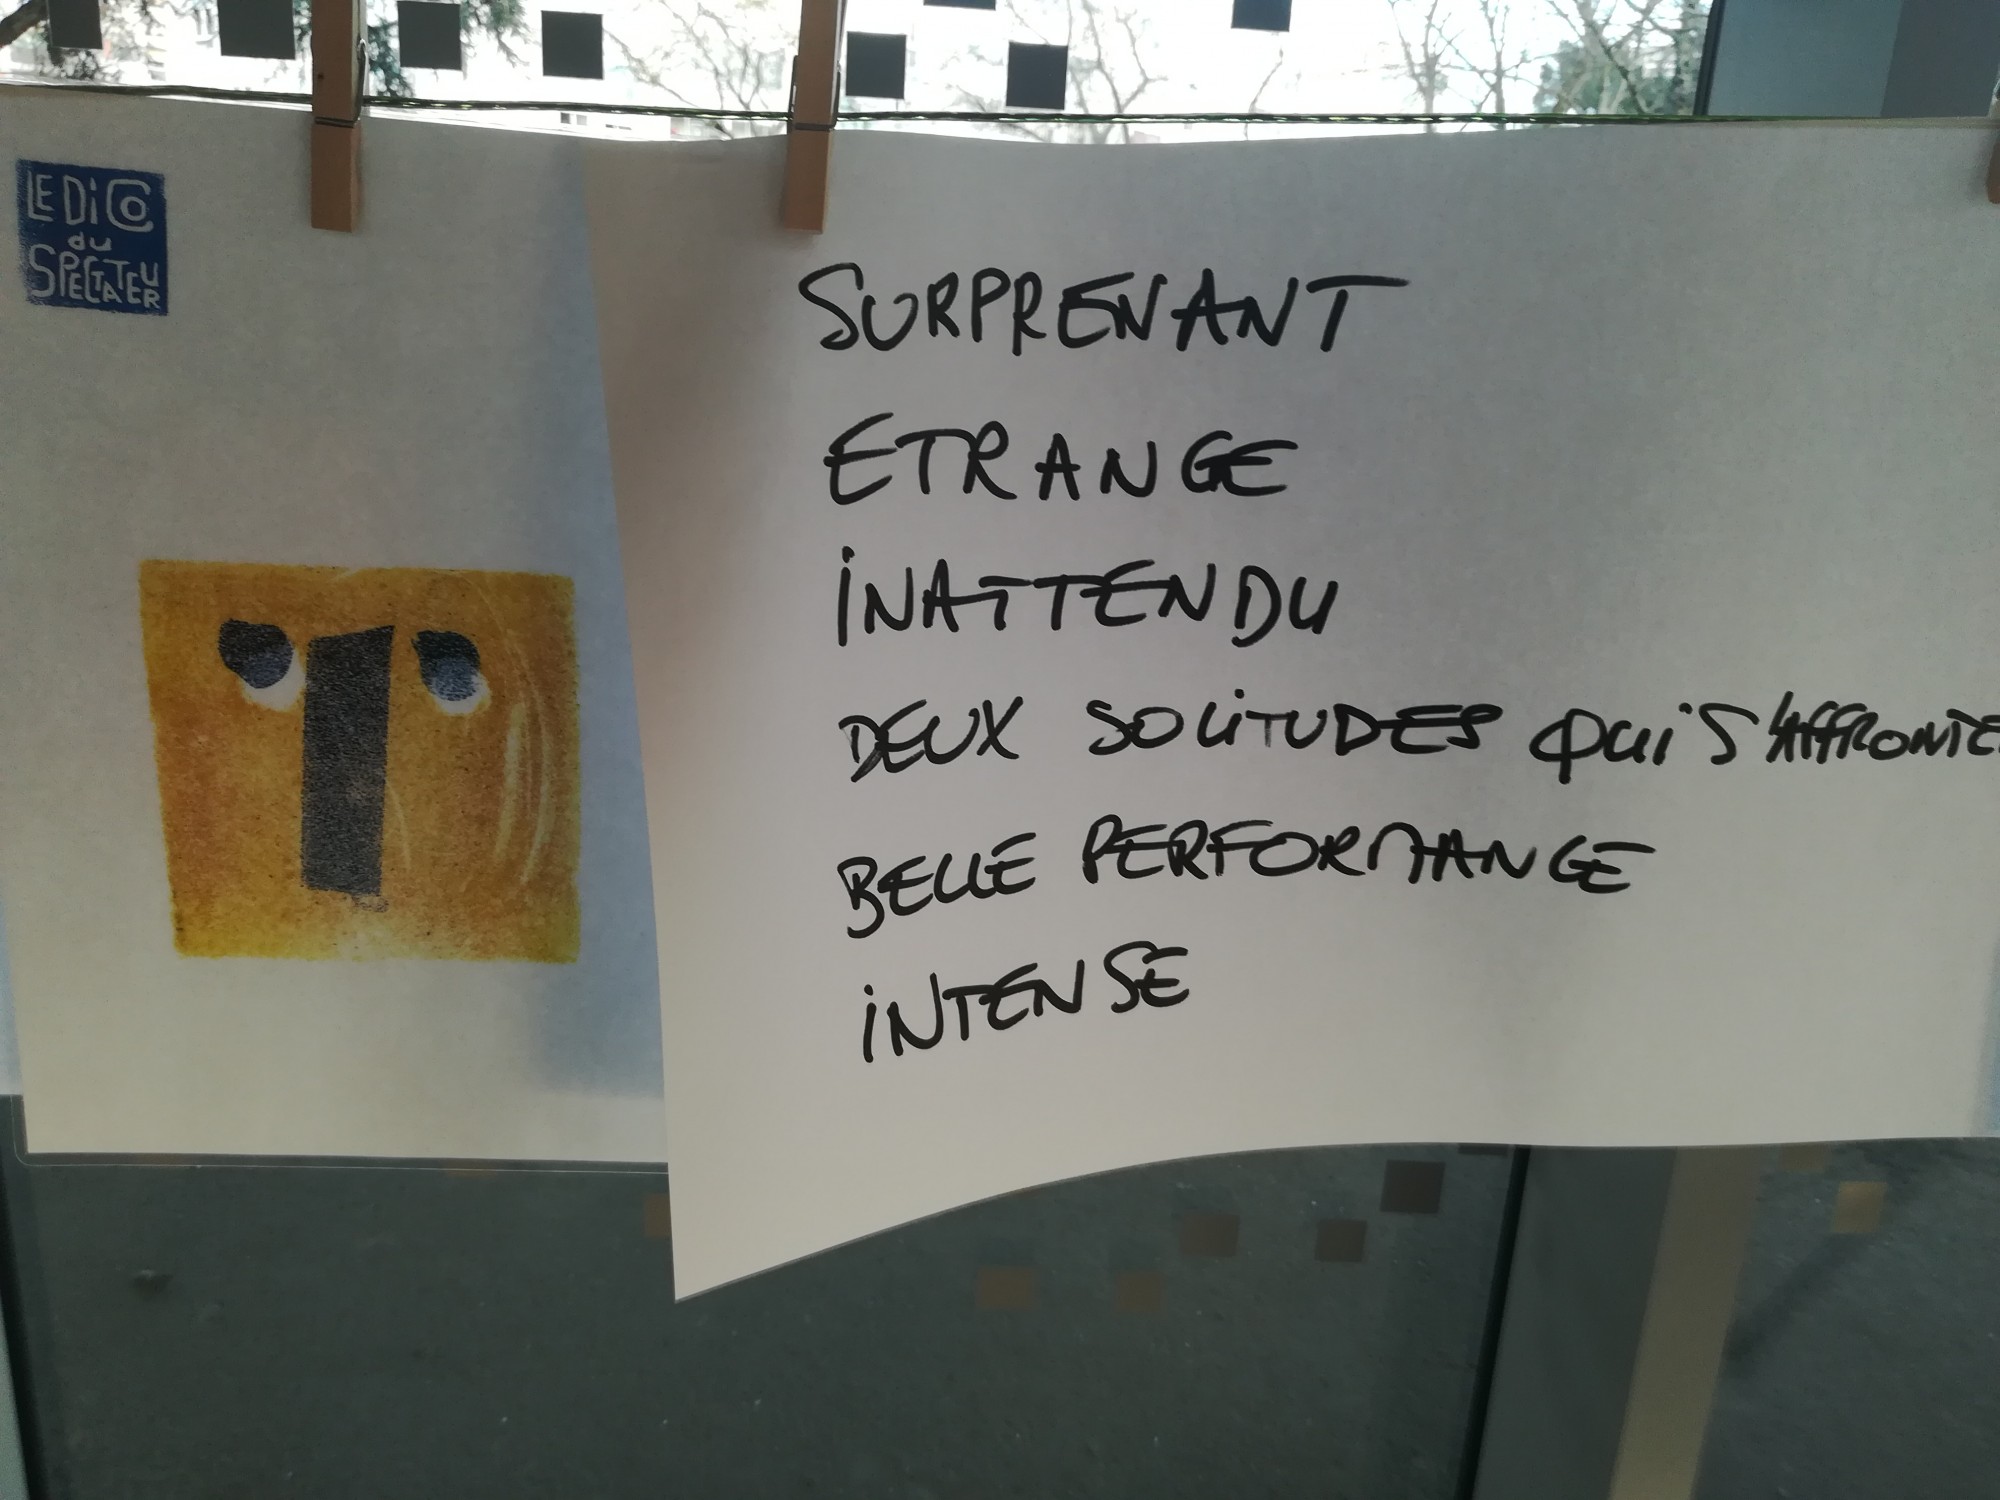 LE DiCO
du
SPECTATEUR
SURPRENANT
ETRANGE
iNATTENDU
DEUX SOLiTUDES QUi S'AFFRONTE
BELLE PERFORMANCE
iNTENSE